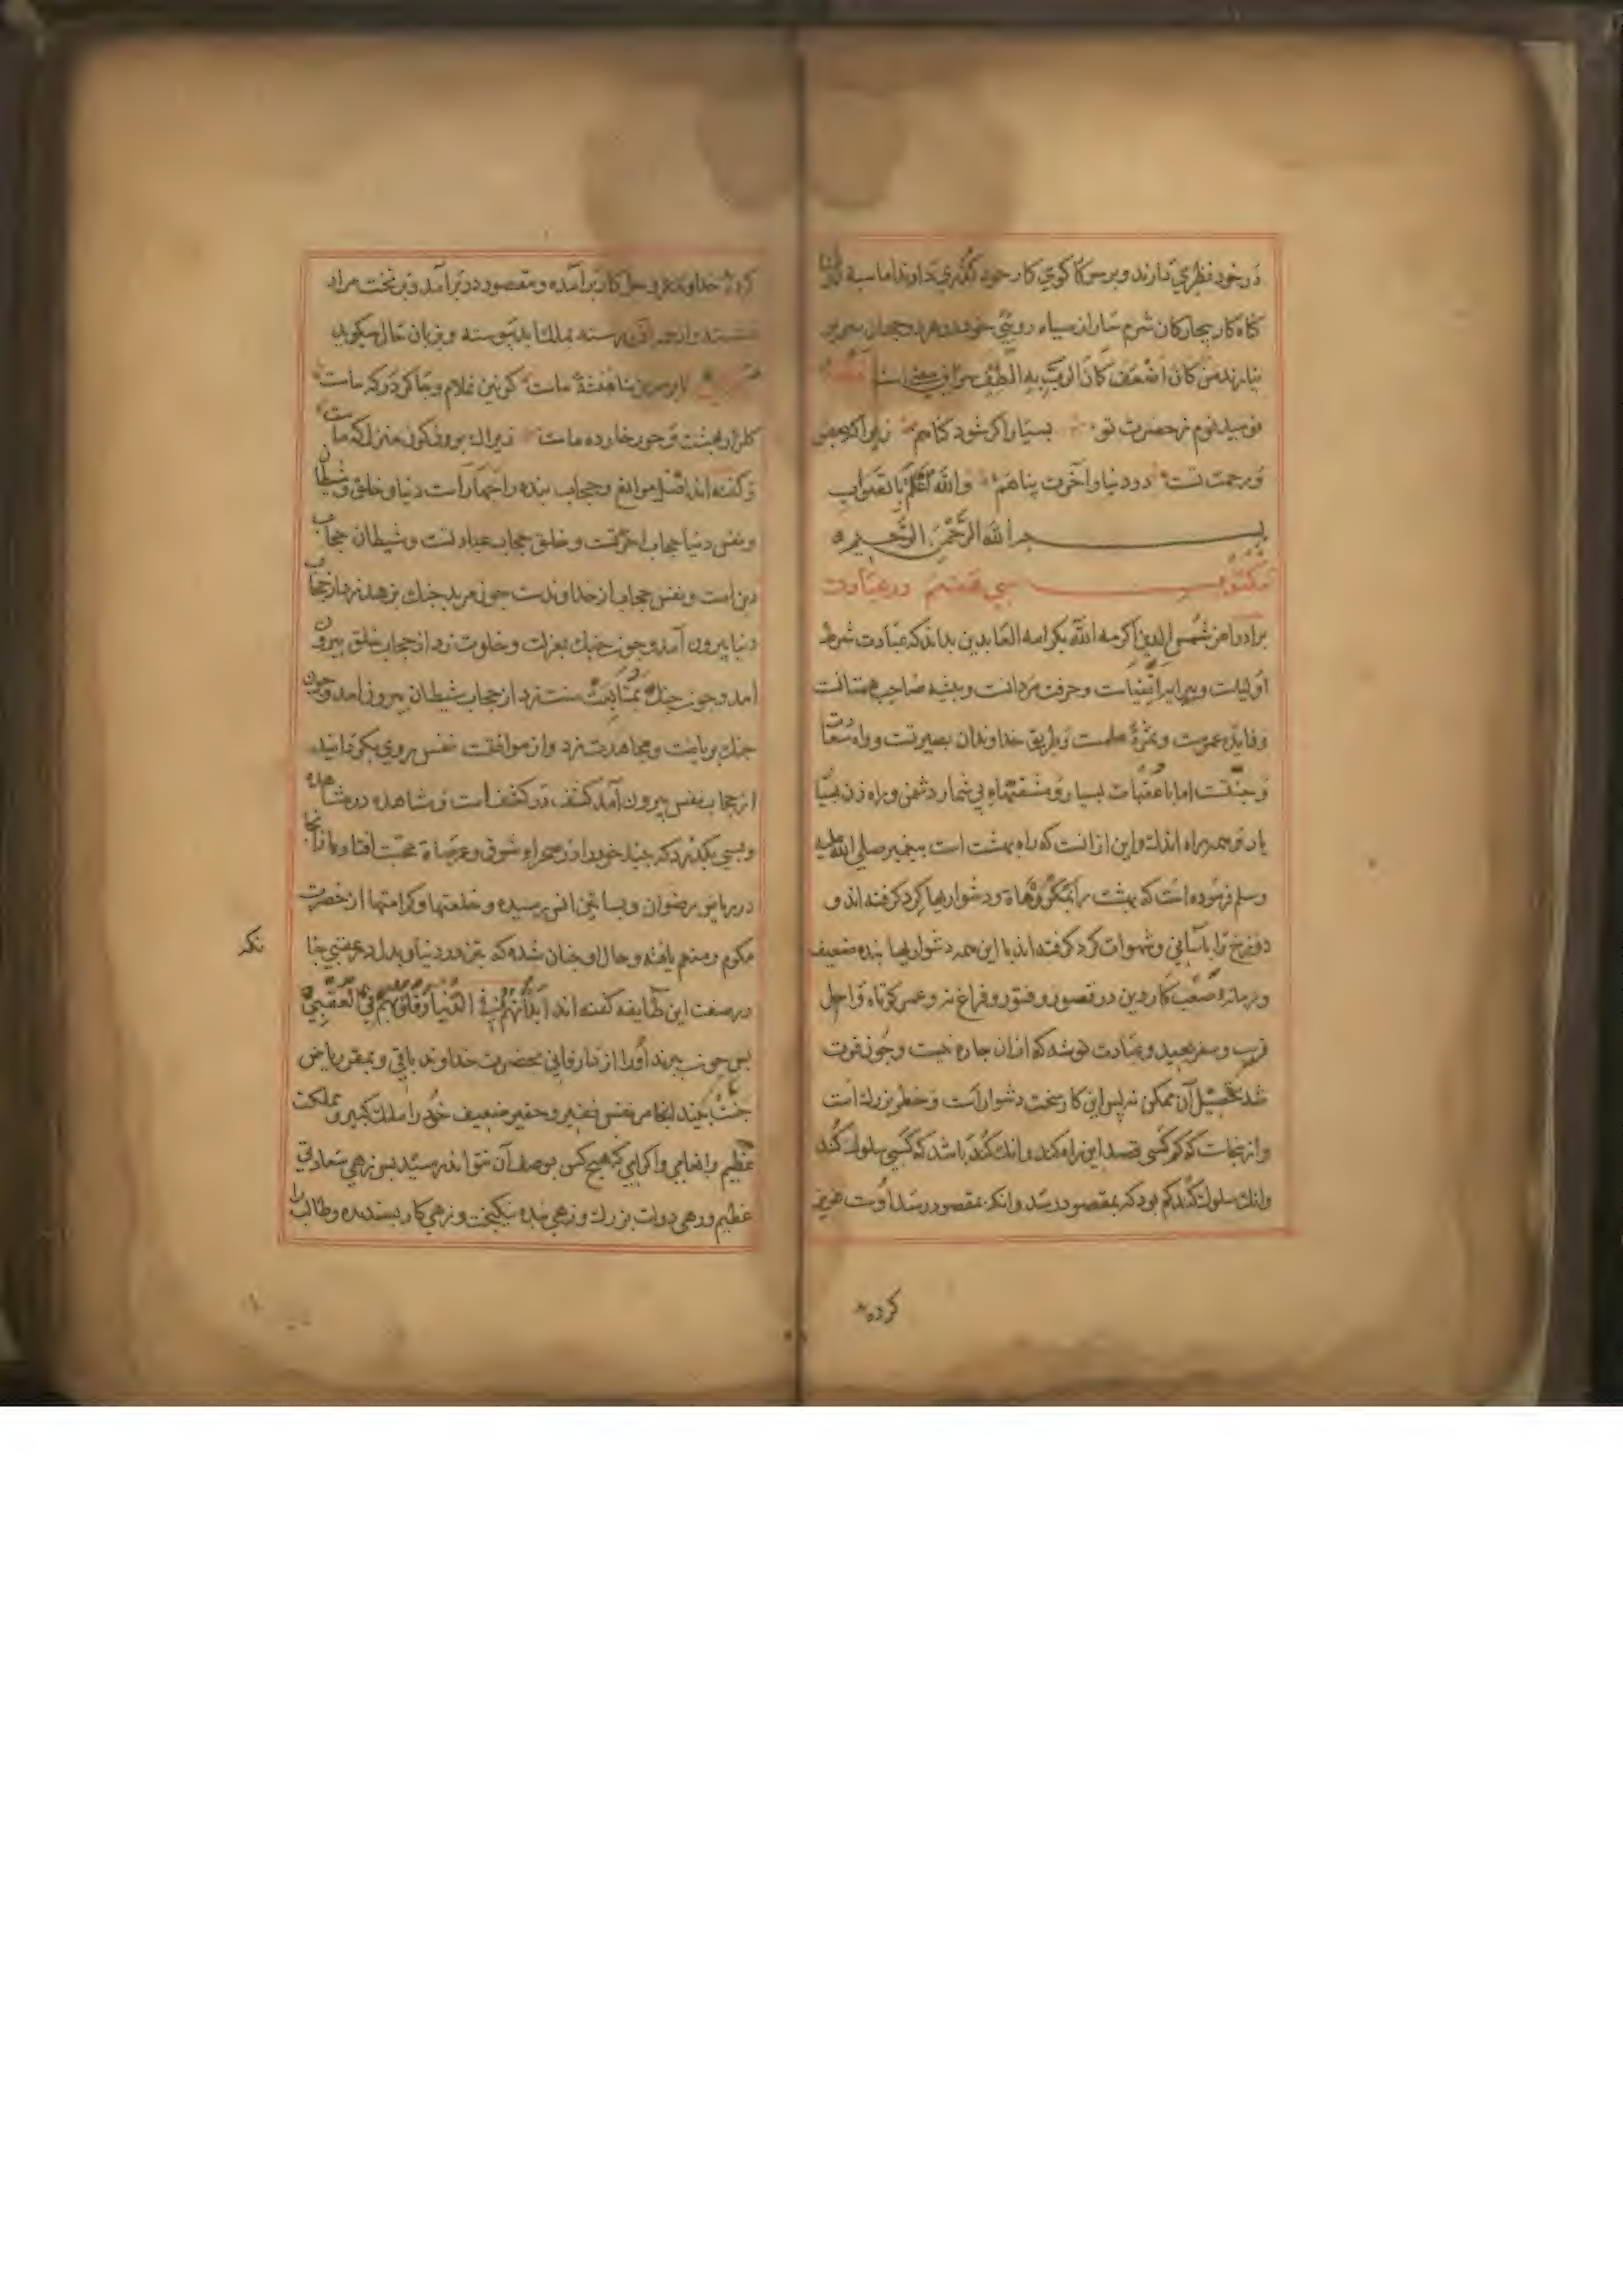 در خود نظری ندارند و بر سر کوی کار خود گذری ندارند اما سیه
کناه کار بیچارکان شرم ساران سیاه روی
نیارند من کان اضعف کان الرب به الطف
نومید نیم ز حضرت تو بسیار اکر شود کناهم زیرا که
و رحمت تست در دنیا و آخرت پناهم والله اعلم بالصواب
بسم الله الرحمن الرحیم
مکتوب سی هفتم در عبادت
برادر اعز شمس الدین اکرمه الله بکرامه العابدین بداند که عبادت
اولیاست و پیرایه اتقیاست و حرفت مردانست و پیشه صاحب همتانست
و فایده عمرست و ثمره علمست و طریق خداوندان بصیرتست و راه سعادت
و جنتست اما با عقبات بسیار و مشقتهای بی شمار دشمن و راه زن بسیار
یار و همراه اندک و این از انست که راه بهشت است پیغمبر صلی الله علیه
وسلم فرموده است که بهشت را بمکروهاة و دشواریها کرد کرفته اند و
دوزخ را باسانی و شهوات کرد کرفته اند با این همه دشواریها بنده ضعیف
و زمانه صعب کار دین در قصور و فتور و فراغ نه و عمر کوتاه و اجل
قریب و سفر بعید و عبادت توشه که ازان چاره نیست و چون فوت
شد تحصیل آن ممکن نه پس این کار سخت دشوار است و خطر بزرک است
و ازینجاست که کم کسی قصد این راه کند و انک کند باشد که کسی سلوک کند
وانک سلوک کند کم بود که بمقصود رسد وانک بمقصود رسد اوست عزیز
کرده
کرده خداوند عز و جل کار برآمده و مقصود در بر آمد و بر تخت مراد
بملک ابد پیوسته و بزبان حال میکوید
ما است کونین غلام و چاکر درکه ماست
کلزار بهشت و حور خار ره ماست زیراک برون کون منزلکه ماست
و کفته اند اصل موانع و حجاب بنده را چهار است دنیا و خلق و شیطان
و نفس دنیا حجاب اخرتست و خلق حجاب عبادتست و شیطان حجاب
دین است و نفس حجاب از خداوندست چون مرید چنک بزهد زد از حجاب
دنیا بیرون آمد و چون چنک بعزلت و خلوت زد از حجاب خلق بیرون
امد و چون چنک بمتابعت سنت زد از حجاب شیطان بیرون امد و چون
چنک بریاضت و مجاهدت زد و از موافقت نفس روی بکردانید
از حجاب نفس بیرون آمد کشف در کشف است و مشاهده در مشاهده
و بسی نکذرد که خود را در صحراء شوق و عرصاة محبت افتاده
در ریاض رضوان و بساتین انس رسیده و خلعتها و کرامتها از حضرت
مکرم و منعم یافته و حال او چنان شده که بتن در دنیا و بدل در عقبی چنا
نکه
در صفت این طایفه کفته اند ابدانهم فی الدنیا و قلوبهم فی العقبی
پس چون ببرند او را از دار فانی بحضرت خداوند باقی و بمقر ریاض
جنت بیند انجا مر نفس فقیر و حقیر ضعیف خود را ملک کبیر و مملکت
عظیم و انعامی و اکرامی که هیچ کس بوصف آن نتواند رسید پس زهی سعادتی
عظیم و زهی دولت بزرک و زهی بنده نیکبخت و زهی کار پسندیده و طالب را